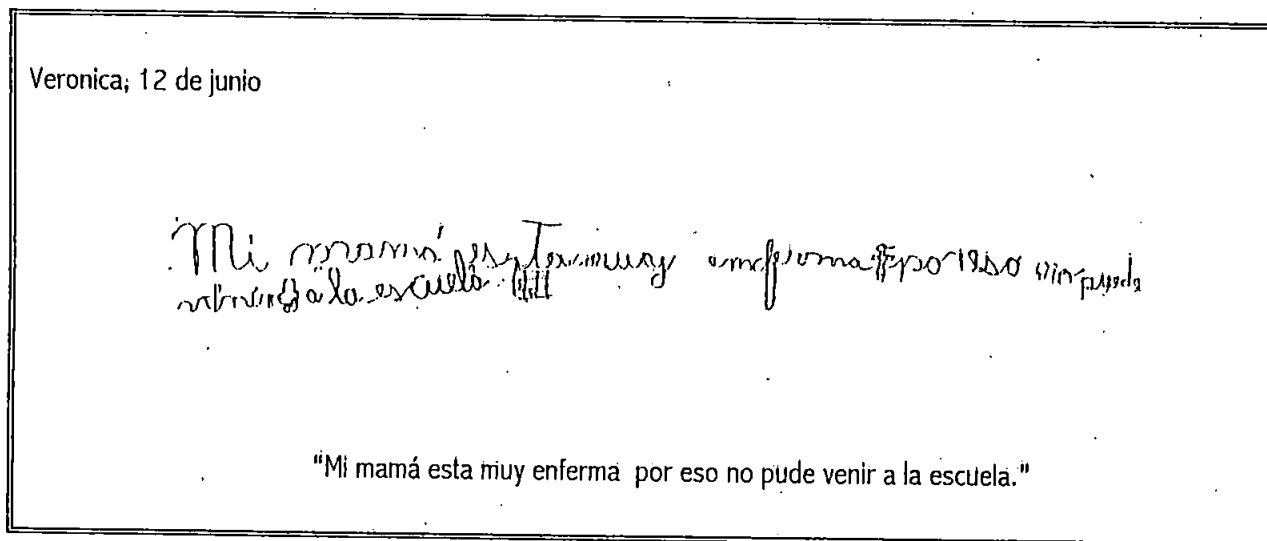 Veronica, 12 de junio
Mi mamá es Ta muy emfirma por eso nin puede
a la escuela
"Mi mamá esta muy enferma por eso no pude venir a la escuela."